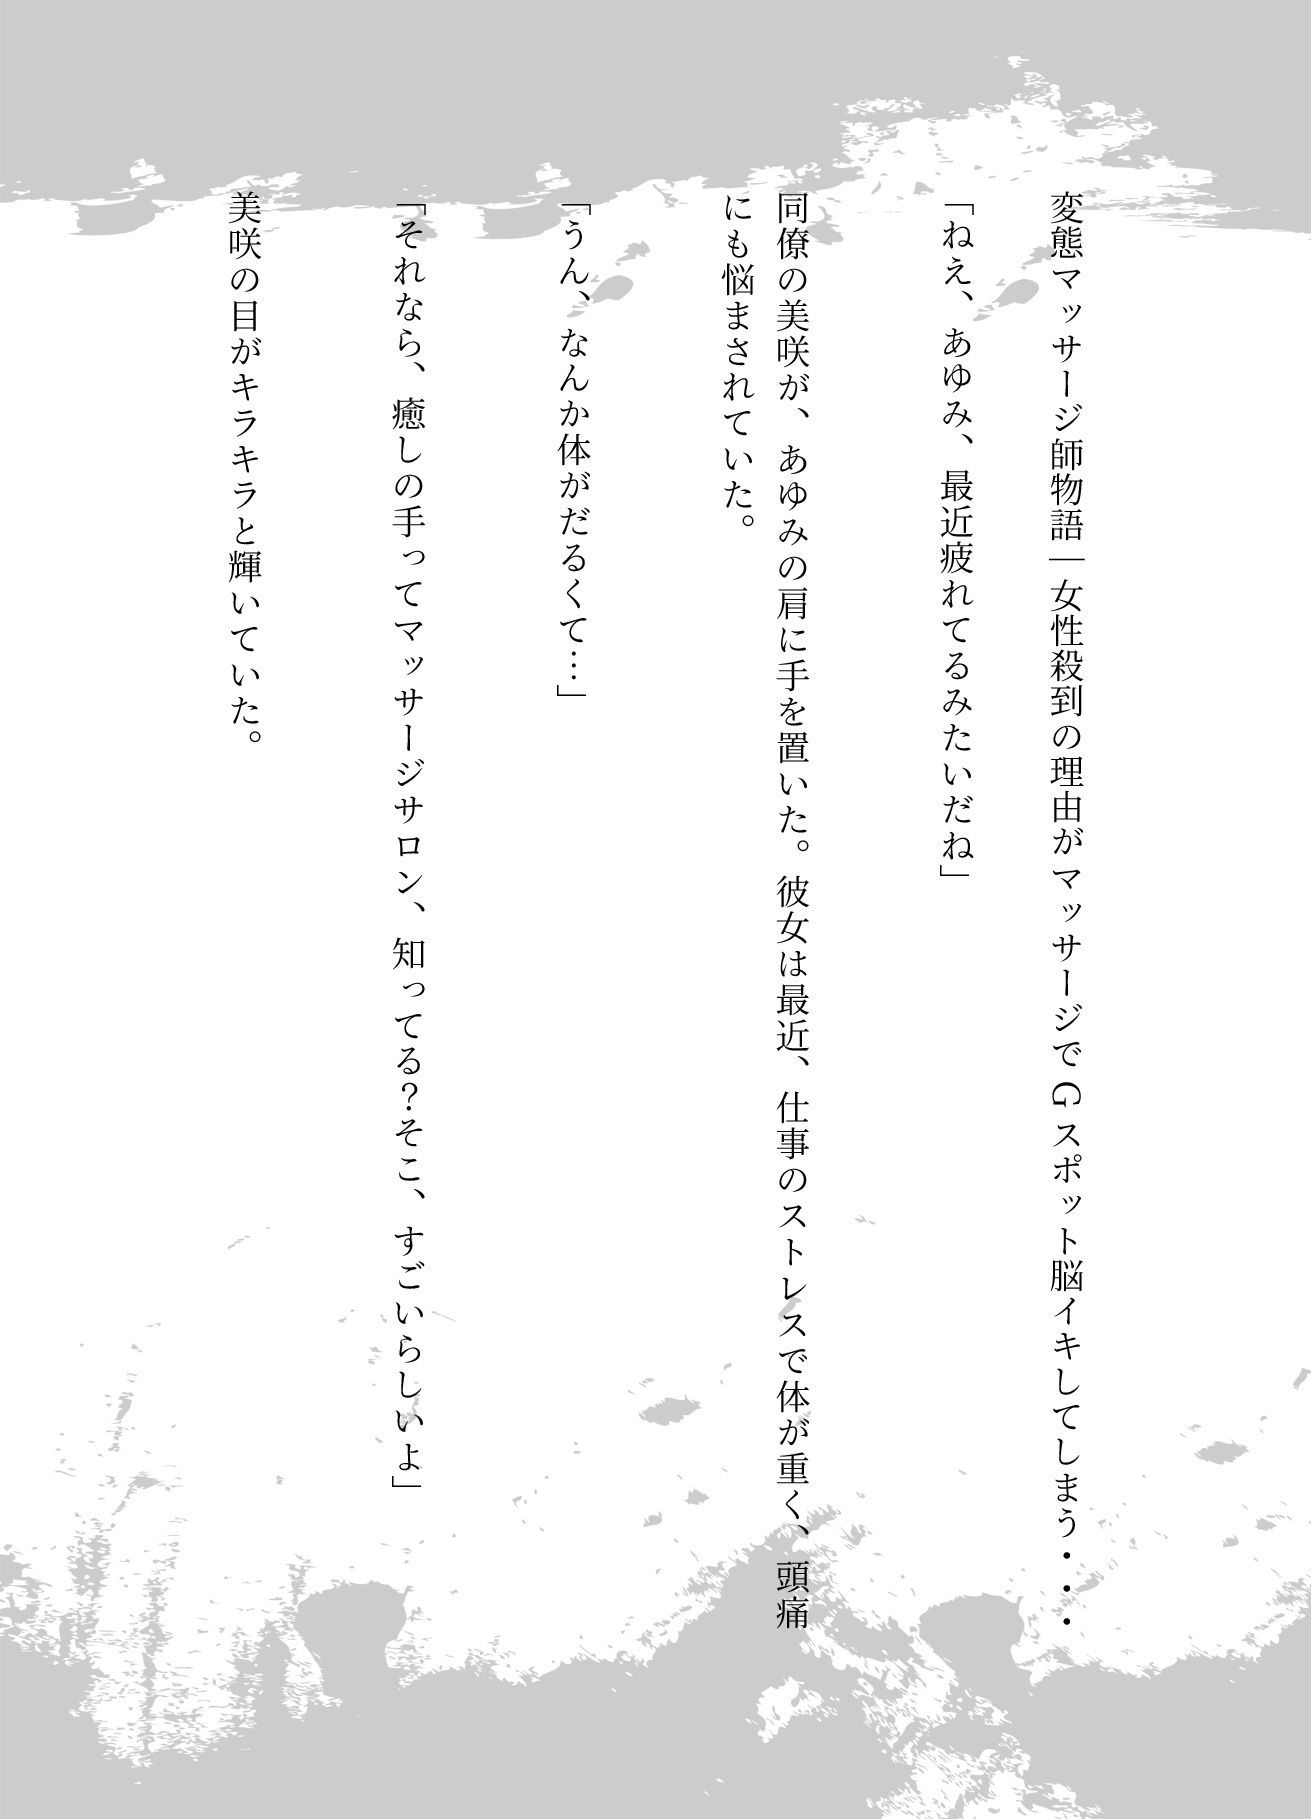 変態マッサージ師物語｜女性殺到の理由がマッサージでGスポット脳イキしてしまう・・・
「ねえ、あゆみ、最近疲れてるみたいだね」
同僚の美咲が、あゆみの肩に手を置いた。彼女は最近、仕事のストレスで体が重く、頭痛
にも悩まされていた。
「うん、なんか体がだるくて…」
「それなら、癒しの手ってマッサージサロン、知ってる？そこ、すごいらしいよ」
美咲の目がキラキラと輝いていた。